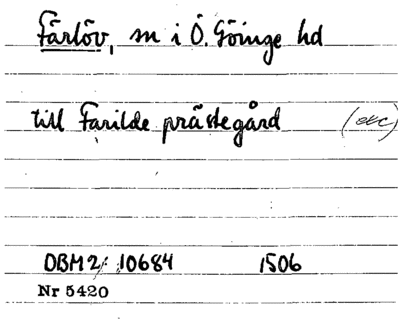 Färlöv, sn i Ö. Göinge hd
till Farilde prästegård (exc)
DBM2: 10684 1506
Nr 5420